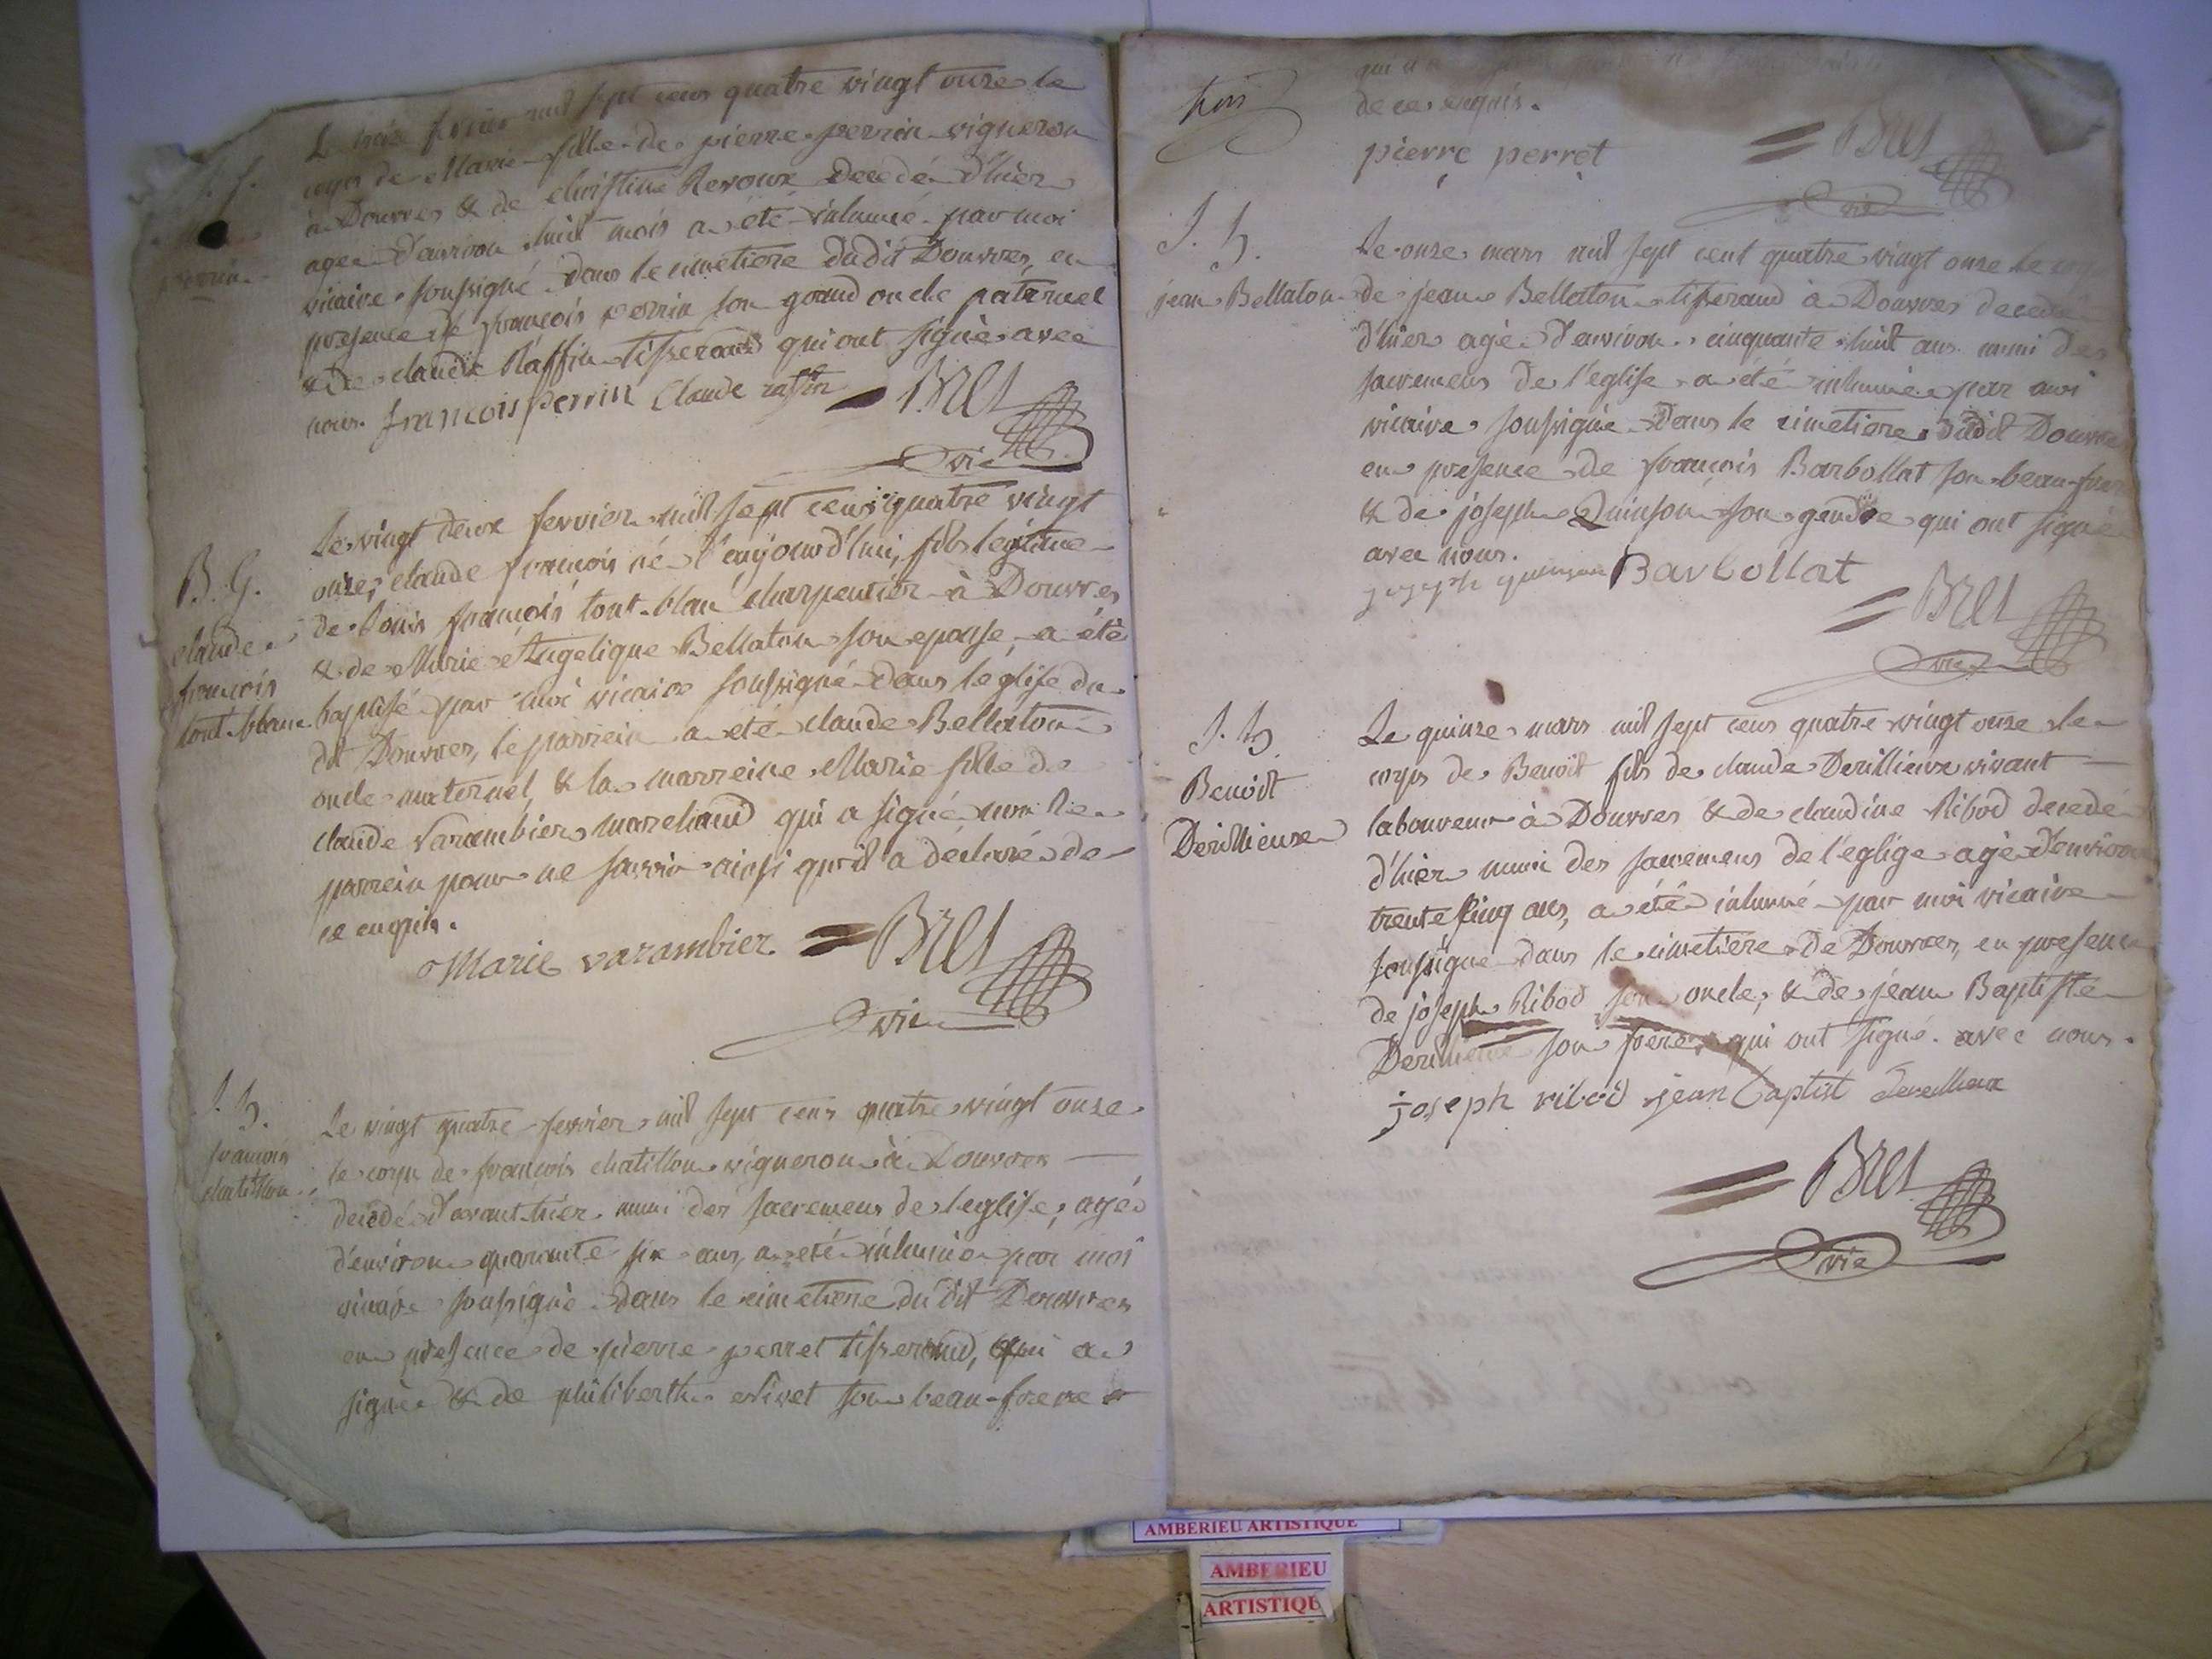 Le treize fevrier mil sept cens quatre vingt onze le
corps de Marie fille de pierre perrin vigneron
à Douvres & de christine Revoux decedée d'hier
agée d'environ huit mois a été inhumé par moi
vicaire soussigné dans le cimetiere dudit Douvres, en
presence de françois perrin son grand oncle paternel
& de claude Raffin tisserand qui ont signé avec
nous. francois perrin Claude raffin Bret
vic
perrin
B. G.
claude
françois
tont-blanc
Le vingt deux fevrier mil sept cens quatre vingt
onze, claude françois né d'aujourd'hui, fils legitime
de Louis françois tont-blan charpentier à Douvres
& de Marie Angelique Bellaton son epouse, a été
baptisé par moi vicaire soussigné dans l'eglise du
dit Douvres, le parrein a été claude Bellaton
oncle maternel, & la marreine Marie fille de
claude Varambier marchand qui a signé non le
parrein pour ne savoir ainsi qu'il a déclaré de
ce enquis.
Marie varambier Bret
vic
S. h.
françois
chatillon
Le vingt quatre fevrier mil sept cens quatre vingt onze
le corps de françois chatillon vigneron à Douvres
decedé d'avant hier muni des sacremens de l'eglise, agé
d'environ quarante six ans, a été inhumé par moi
vicaire soussigné dans le cimetiere du dit Douvres
en presence de pierre perret tisserand, qui a
signé & de philiberth olivet son beau-frere
qui n
de ce enquis.
pierre perret Bret
vic
S. h.
jean Bellaton
Le onze mars mil sept cent quatre vingt onze le corps
de jean Bellaton tisserand à Douvres decedé
d'hier agé d'environ cinquante huit ans muni des
sacremens de l'eglise a été inhumé par moi
vicaire soussigné dans le cimetiere dudit Douvres
en presence de françois Barbollat son beau-frere
& de joseph Quinson son gendre qui ont signé
avec nous.
joseph quinson Barbollat
Bret
vic
S. h.
Benoit
Derillieux
Le quinze mars mil sept cens quatre vingt onze le
corps de Benoit fils de claude Derillieux vivant
laboureur à Douvres & de claudine Ribod decedé
d'hier muni des sacremens de l'eglige agé d'environ
trente sinq ans, a été inhumé par moi vicaire
soussigné dans le cimetiere de Douvres, en presence
de joseph Ribod son oncle, & de jean Baptiste
Derillieux son frere qui ont signé avec nous.
joseph ribod jean baptist derillieux
Bret
vic
AMBERIEU ARTISTIQUE
AMBERIEU
ARTISTIQUE